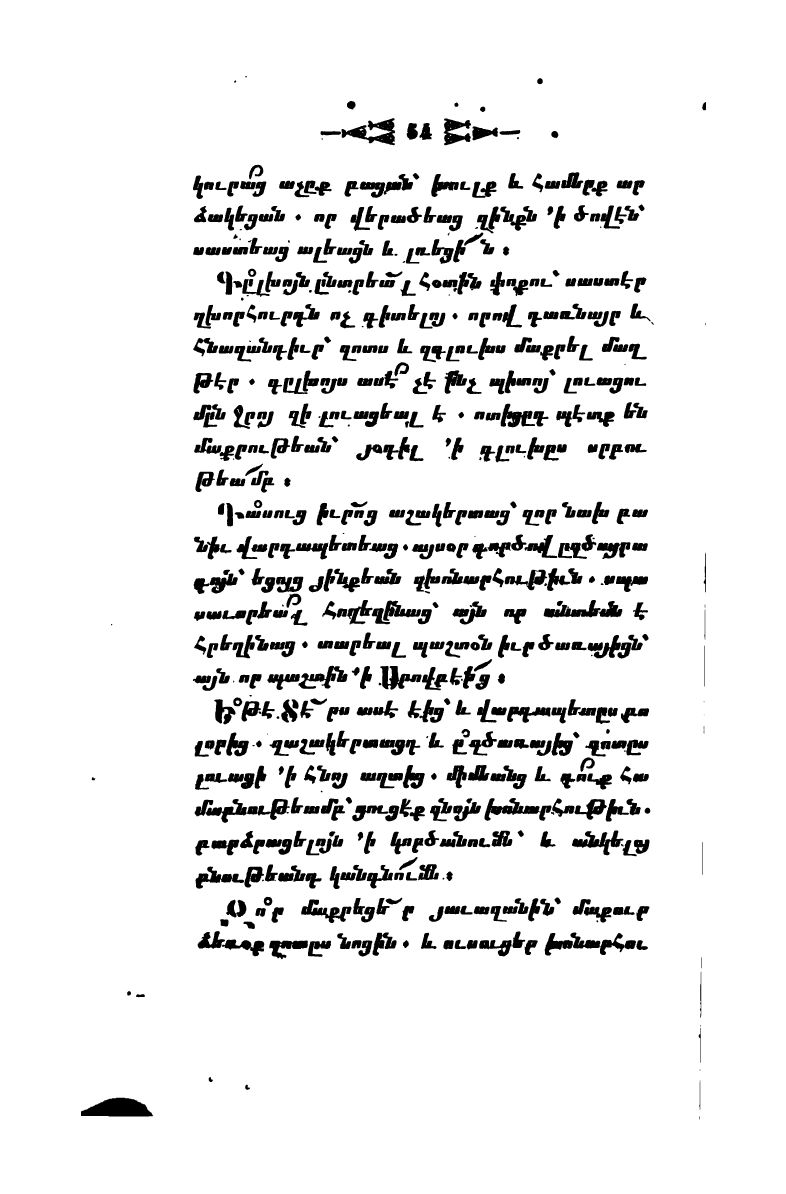 54
կուրաց աչըք բացան՝ խուլք և Համերք ար
ձակեցան . որ վերածեաց զինքն ՚ի ծովէն՝
սաստեաց ալեացն և լռեցին :
Գըլխոյն ընտրեալ Հօտին փոքու՝ սաստէր
զխորՀուրդն ոչ գիտելոյ . որով դառնայր և
Հնազանդիւր՝ զոտս և զգլուխս մաքրել մաղ
թէր . գըլխոյս ասէ չէ ինչ պիտոյ՝ լուացու
մըն ջրոյ զի լուացեալ է . ոտիցըդ պէտք են
մաքրութեան՝ յօդիլ ՚ի գլուխըս սրբու
թեամբ :
Դասուց իւրոց աշակերտաց՝ զոր նախ բա
նիւ վարդապետեաց . այսօր գործով ըզծայրա
գոյն՝ եցոյց յինքեան զխոնարՀութիւն . սպա
սաւորեալ Հողեղինաց՝ այն որ անտեսն է
Հրեղինաց . տարեալ պաշտօն իւր ծառայիցն՝
այն որ պաշտին ՚ի Սրովբէից :
Եթէ Տէրս ասէ էից՝ և վարդապետըս բո
լորից . զաշակերտացդ և ըզծառայից՝ զոտըս
լուացի ՚ի Հնոյ աղտից . միմեանց և դուք Հա
մարնութեամբ՝ ցուցէք զնոյն խոնարՀութիւն .
բարձրացելոյն ՚ի կործանումն՝ և անկելոյ
բնութեանդ կանգնումն :
Օ որ մաքրեցեր յաւազանին՝ մաքուր
ձեռօք զոտըս նոցին . և ուսուցեր խոնարՀու